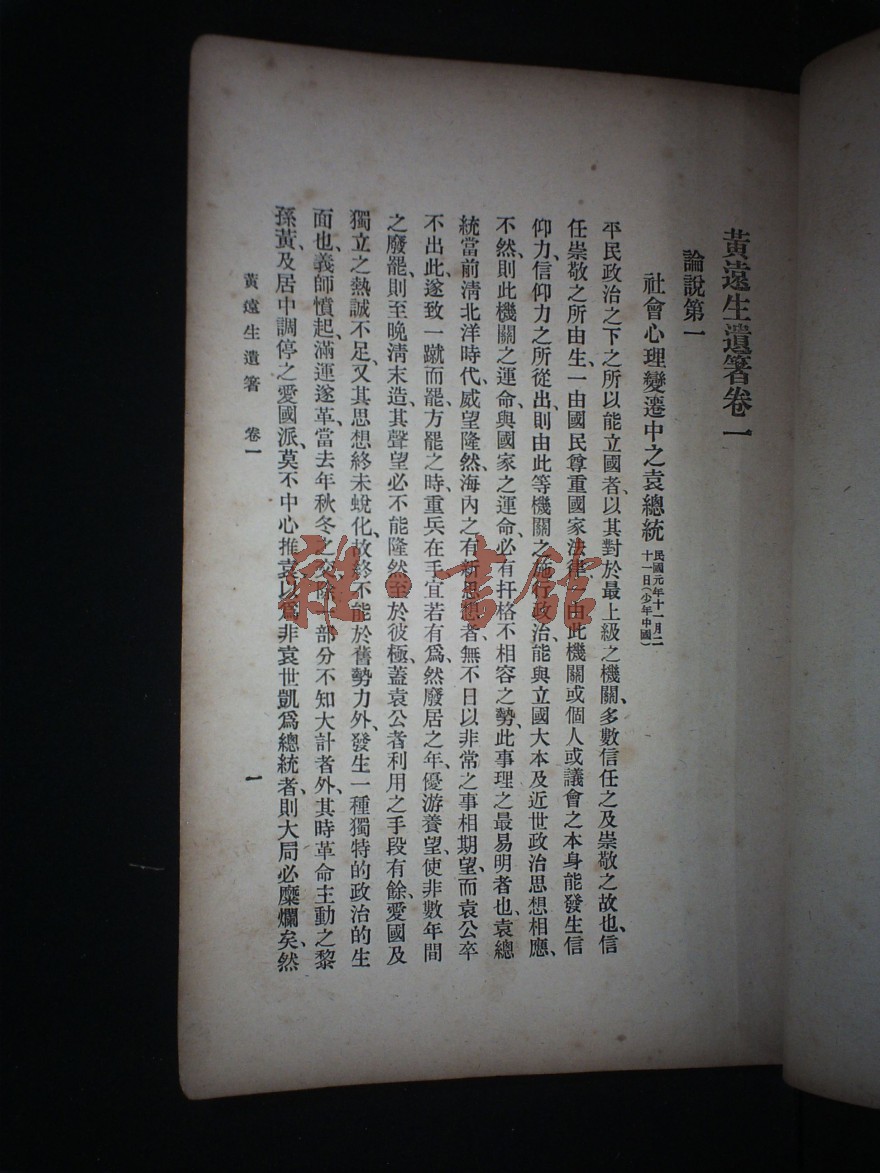 黃遠生遺箸卷一
論說第一
社會心理變遷中之袁總統 民國元年十一月二十一日(少年中國)
平民政治之下之所以能立國者、以其對於最上級之機關、多數信任之及崇敬之故也、信
任崇敬之所由生、一由國民尊重國家法律、一由此機關或個人或議會之本身能發生信
仰力、信仰力之所從出、則由此等機關之施行政治、能與立國大本及近世政治思想相應、
不然則此機關之運命、與國家之運命、必有扞格不相容之勢、此事理之最易明者也、袁總
統當前淸北洋時代、威望隆然、海內之有新思想者、無不日以非常之事相期望、而袁公卒
不出此、遂致一蹴而罷、方罷之時、重兵在手、宜若有爲、然廢居之年、優游養望、使非數年間
之廢罷、則至晚淸末造、其聲望必不能隆然至於彼極、蓋袁公者利用之手段有餘、愛國及
獨立之熱誠不足、又其思想終未蛻化、故終不能於舊勢力外、發生一種獨特的政治的生
面也、義師憤起、滿運遂革、當去年秋冬之交、除一部分不知大計者外、其時革命主動之黎
孫黃、及居中調停之愛國派、莫不中心推袁、以爲非袁世凱爲總統者、則大局必糜爛矣、然
黃遠生遺箸 卷一
一
雜·書館